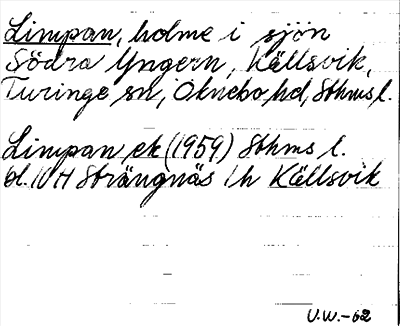 Limpan, holme i sjön
Södra Yngern, Källsvik,
Turinge sn, Öknebo hd, Sthms l.
Limpan ek (1959) Sthms l.
bl. 10 H Strängnäs 1h Källsvik
U.W.-62